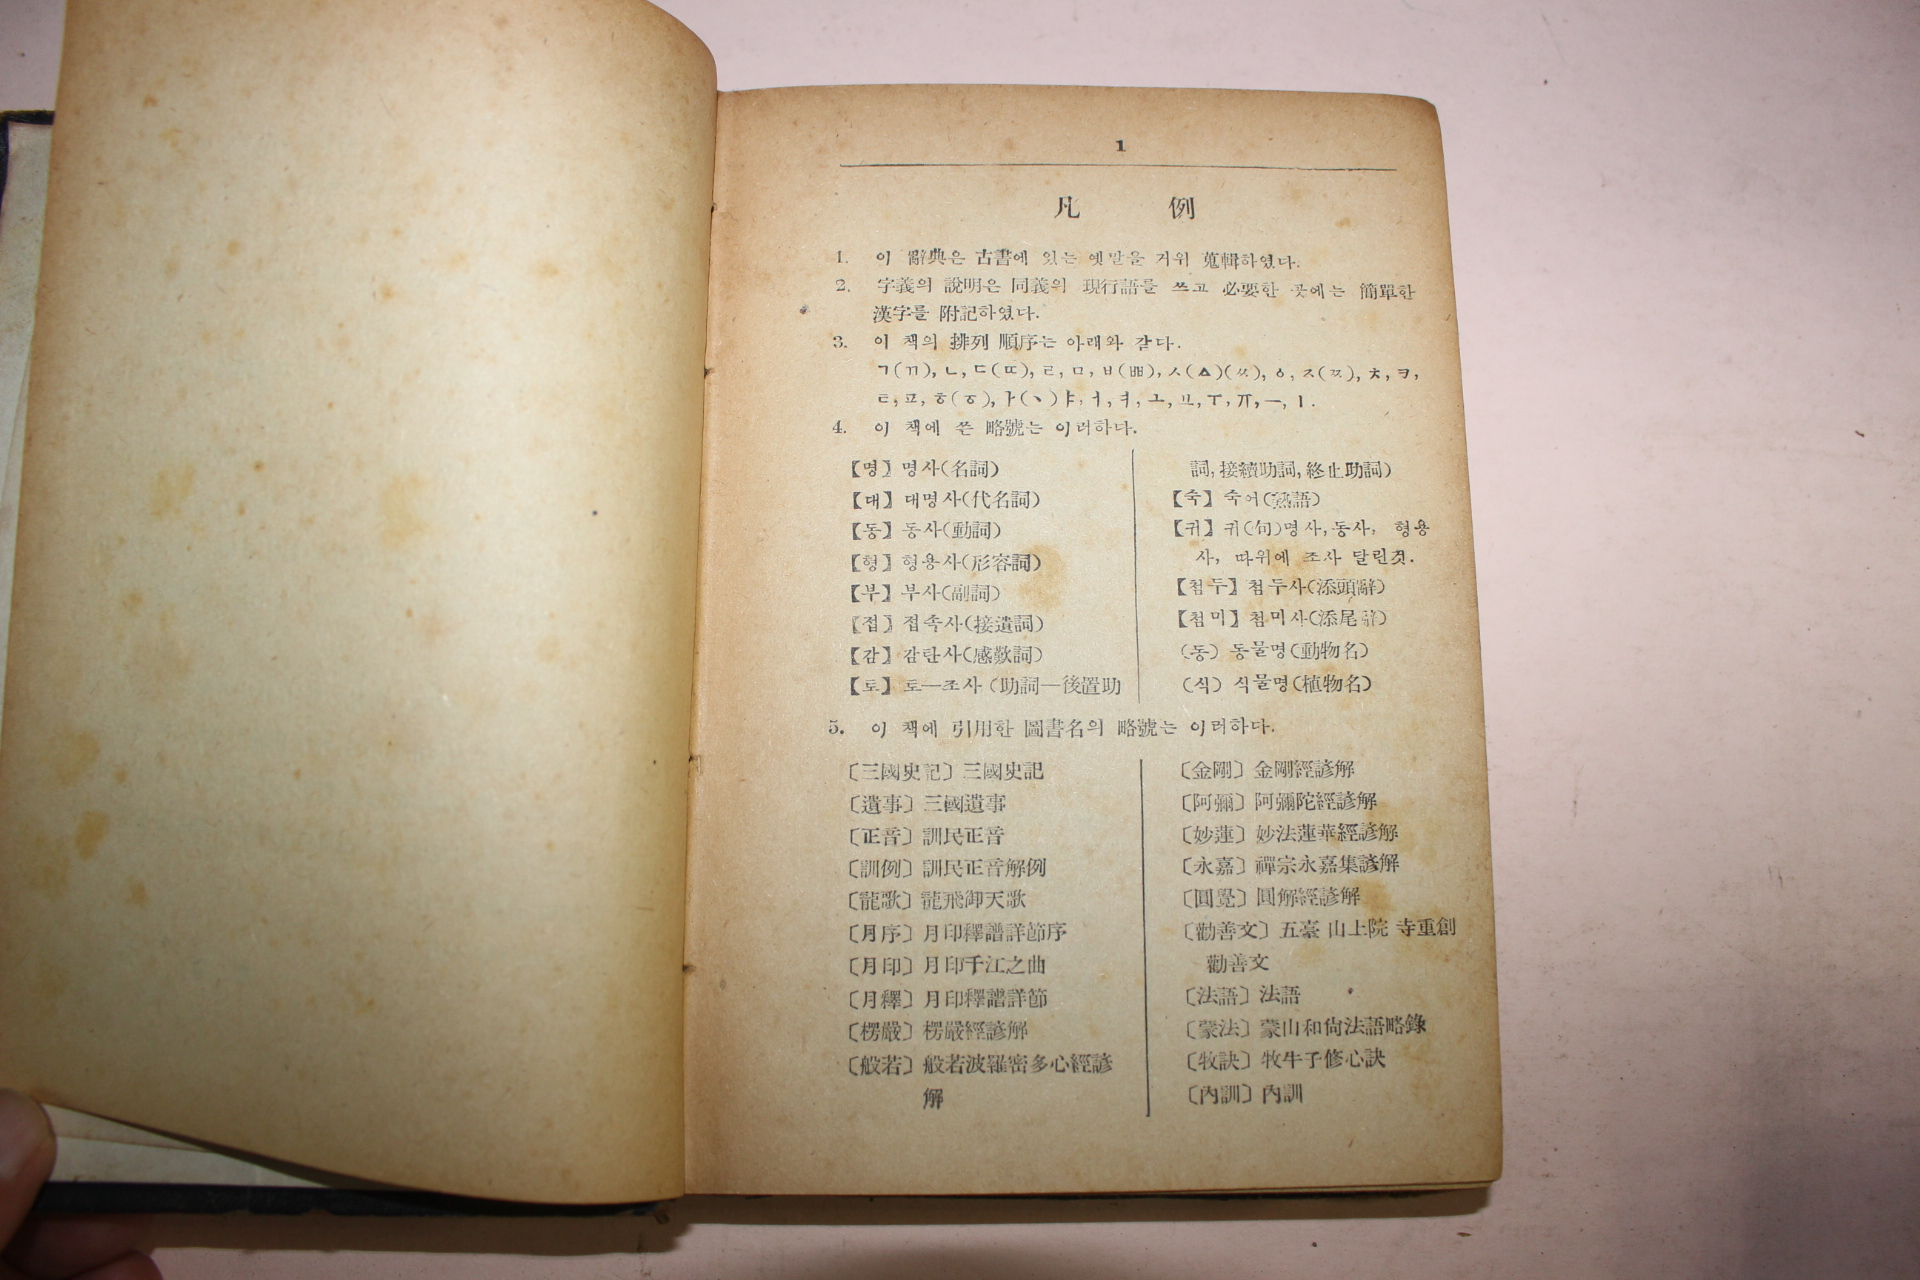 1
凡 例
1. 이 辭典은 古書에 있는 옛말을 거위 蒐輯하였다.
2. 字義의 說明은 同義의 現行語를 쓰고 必要한 곳에는 簡單한
漢字를 附記하였다.
3. 이 책의 排列 順序는 아래와 같다.
ㄱ(ㄲ), ㄴ, ㄷ(ㄸ), ㄹ, ㅁ, ㅂ(ㅃ), ㅅ(ㅿ)(ㅆ), ㆁ, ㅈ(ㅉ), ㅊ, ㅋ,
ㅌ, ㅍ, ㅎ(ㆆ), ㅏ(ㆍ)ㅑ, ㅓ, ㅕ, ㅗ, ㅛ, ㅜ, ㅠ, ㅡ, ㅣ.
4. 이 책에 쓴 略號는 이러하다.
【명】 명사(名詞)
【대】 대명사(代名詞)
【동】 동사(動詞)
【형】 형용사(形容詞)
【부】 부사(副詞)
【접】 접속사(接遺詞)
【감】 감탄사(感歎詞)
【토】 토—조사 (助詞—後置助
詞, 接續助詞, 終止助詞)
【숙】 숙어(熟語)
【귀】 귀(句)명사, 동사, 형용
사, 따위에 조사 달린것.
【첨두】 첨두사(添頭辭)
【첨미】 첨미사(添尾辭)
(동) 동물명(動物名)
(식) 식물명(植物名)
5. 이 책에 引用한 圖書名의 略號는 이러하다.
〔三國史記〕 三國史記
〔遺事〕 三國遺事
〔正音〕 訓民正音
〔訓例〕 訓民正音解例
〔龍歌〕 龍飛御天歌
〔月序〕 月印釋譜詳節序
〔月印〕 月印千江之曲
〔月釋〕 月印釋譜詳節
〔楞嚴〕 楞嚴經諺解
〔般若〕 般若波羅密多心經諺
解
〔金剛〕 金剛經諺解
〔阿彌〕 阿彌陀經諺解
〔妙蓮〕 妙法蓮華經諺解
〔永嘉〕 禪宗永嘉集諺解
〔圓覺〕 圓解經諺解
〔勸善文〕 五臺 山上院 寺重創
勸善文
〔法語〕 法語
〔蒙法〕 蒙山和尙法語略錄
〔牧訣〕 牧牛子修心訣
〔內訓〕 內訓